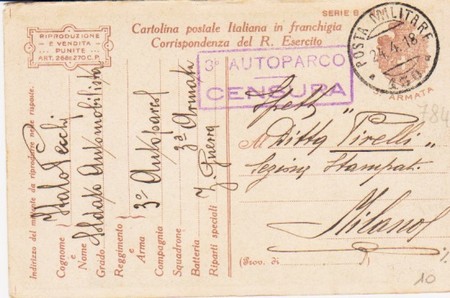 SERIE B
RIPRODUZIONE
E VENDITA
PUNITE
ART. 268 E 270 C.P.
Cartolina postale Italiana in franchigia
Corrispondenza del R. Esercito
POSTA MILITARE
4.18
ARMATA
3º AUTOPARCO
CENSURA
784
Spett
Al Ditta Pirelli
Milano
(Prov. di
10
Indirizzo del mittente da riprodurre nelle risposte.
Cognome e Nome Italo Pecchi
Grado Soldato Automobilista
Reggimento e Arma 3º Autoparco
Compagnia
Squadrone 3ª Armata
Batteria
Riparti speciali Z. Guerra